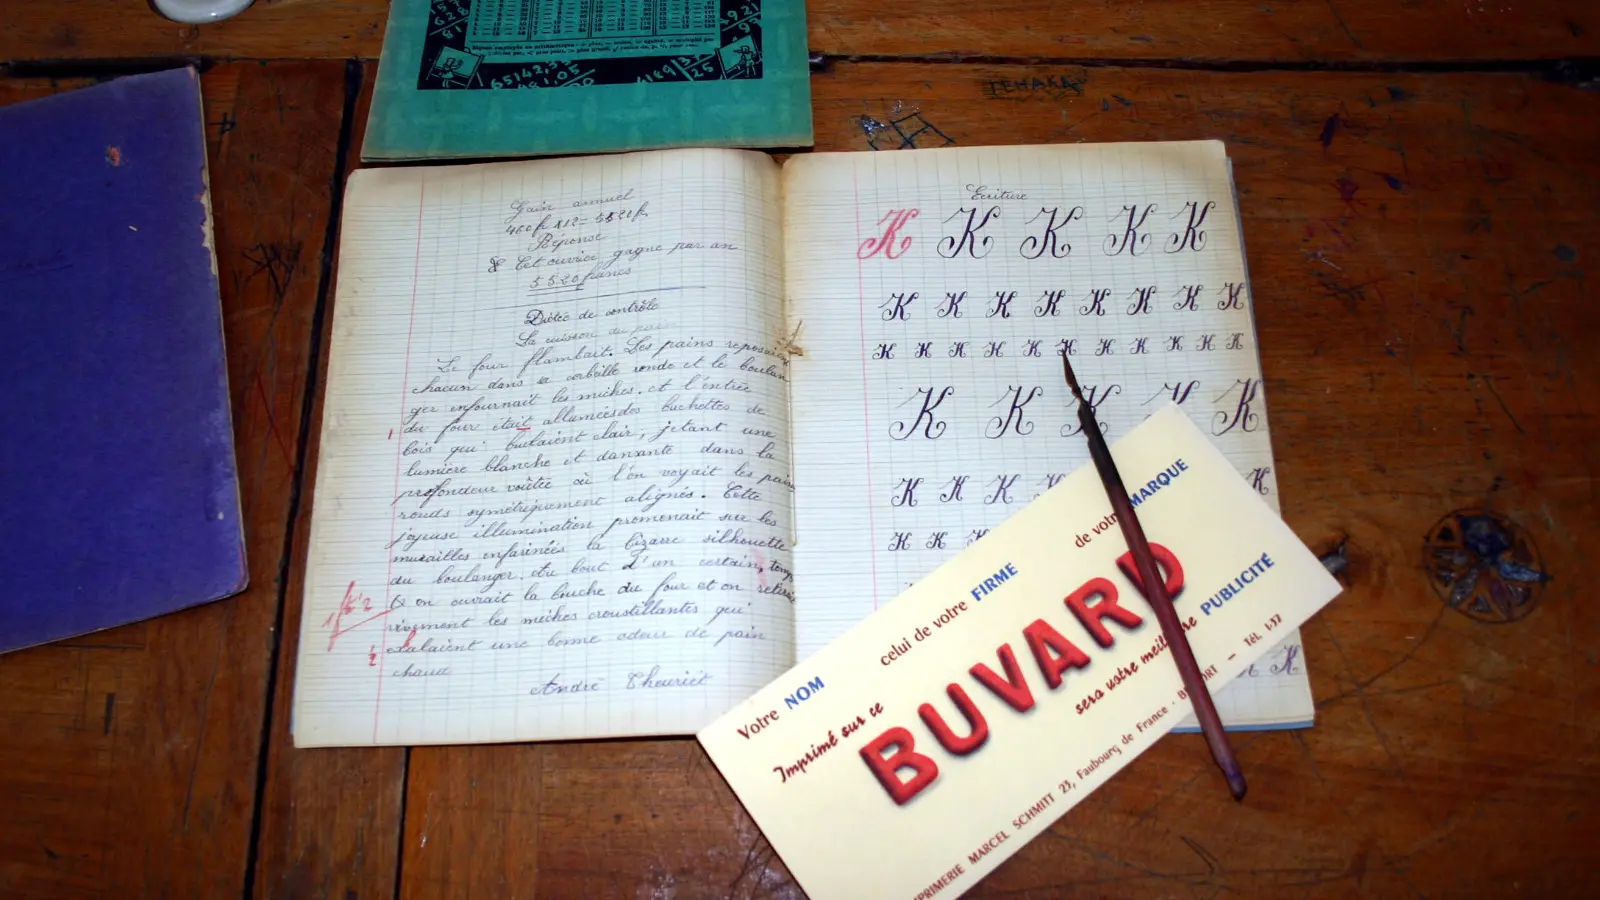 65142,5
4189
25
921
628
Gain annuel
460f x 12 = 5520f
Réponse
Cet ouvrier gagne par an
5520 francs
Dictée de contrôle
La cuisson du pain
Le four flambait. Les pains reposaient
chacun dans sa corbeille ronde et le boulan
ger enfournait les miches. et l'entrée
du four était allumées des buchettes de
bois qui brulaient clair, jetant une
lumière blanche et dansante dans la
profondeur voûtée où l'on voyait les pains
ronds symétriquement alignés. Cette
joyeuse illumination promenait sur les
murailles enfarinées la bizarre silhouette
du boulanger. Au bout d'un certain temps
on ouvrait la bouche du four et on retirait
vivement les miches croustillantes qui
exalaient une bonne odeur de pain
chaud
André Theuriet
1
1/2
Ecriture
K K K K K
K K K K K K K K
K K K K K K K K K K K
K K K K K
K K K K K
K K K
K K
Votre NOM celui de votre FIRME de votre MARQUE
Imprimé sur ce
BUVARD
sera votre meilleure PUBLICITÉ
IMPRIMERIE MARCEL SCHMITT 23, Faubourg de France - BELFORT - Tél. 1-77